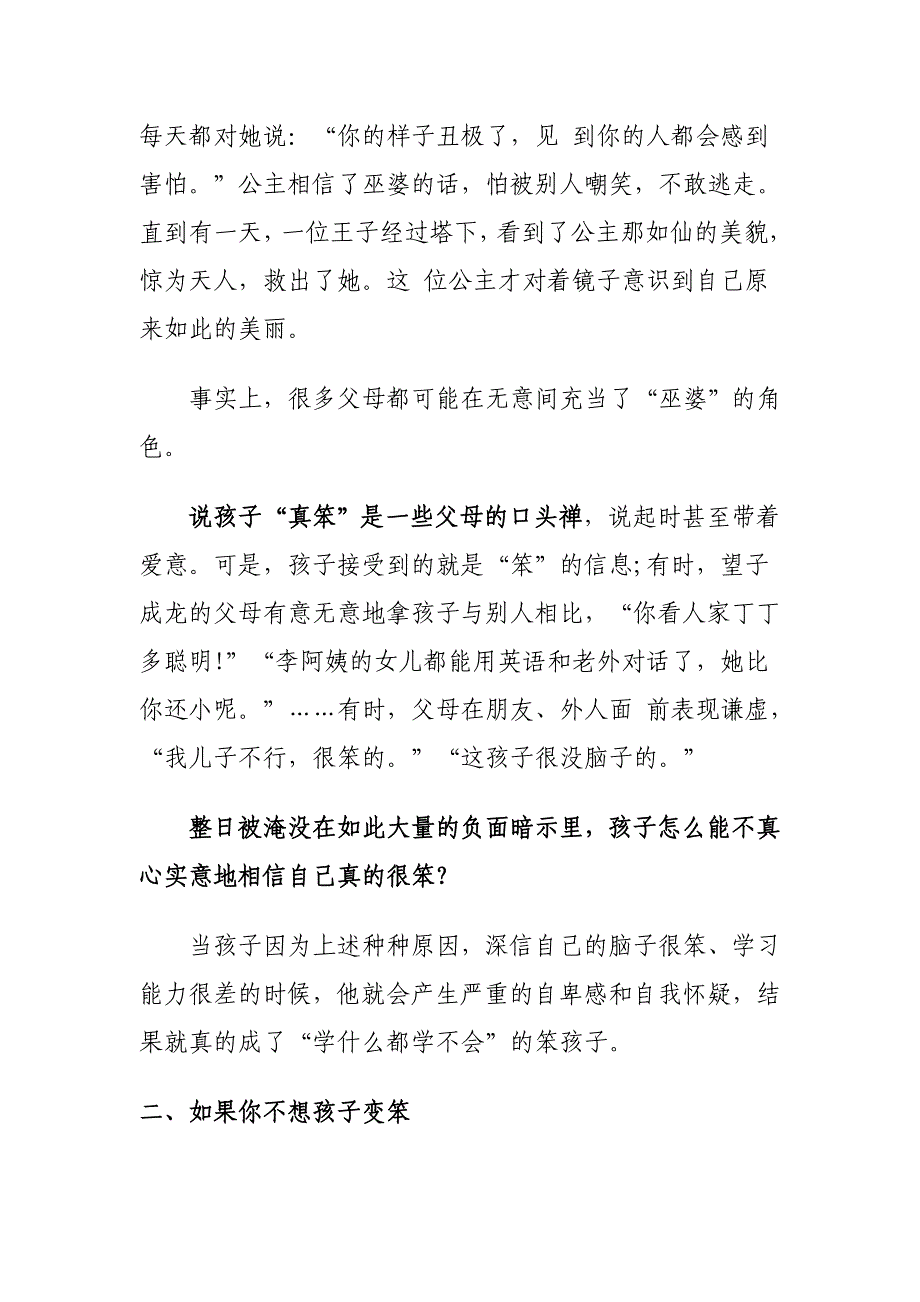 每天都对她说：“你的样子丑极了，见 到你的人都会感到
害怕。”公主相信了巫婆的话，怕被别人嘲笑，不敢逃走。
直到有一天，一位王子经过塔下，看到了公主那如仙的美貌，
惊为天人，救出了她。这 位公主才对着镜子意识到自己原
来如此的美丽。
事实上，很多父母都可能在无意间充当了“巫婆”的角
色。
说孩子“真笨”是一些父母的口头禅，说起时甚至带着
爱意。可是，孩子接受到的就是“笨”的信息；有时，望子
成龙的父母有意无意地拿孩子与别人相比，“你看人家丁丁
多聪明！”“李阿姨的女儿都能用英语和老外对话了，她比
你还小呢。”……有时，父母在朋友、外人面 前表现谦虚，
“我儿子不行，很笨的。”“这孩子很没脑子的。”
整日被淹没在如此大量的负面暗示里，孩子怎么能不真
心实意地相信自己真的很笨？
当孩子因为上述种种原因，深信自己的脑子很笨、学习
能力很差的时候，他就会产生严重的自卑感和自我怀疑，结
果就真的成了“学什么都学不会”的笨孩子。
二、如果你不想孩子变笨